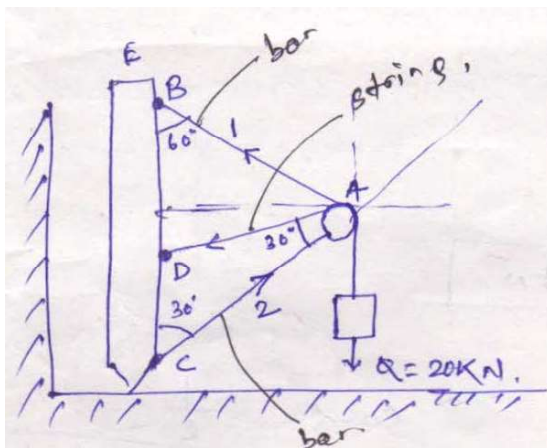 bar
E
B
string.
1
60°
A
30°
D
30°
2
C
Q = 20KN.
bar